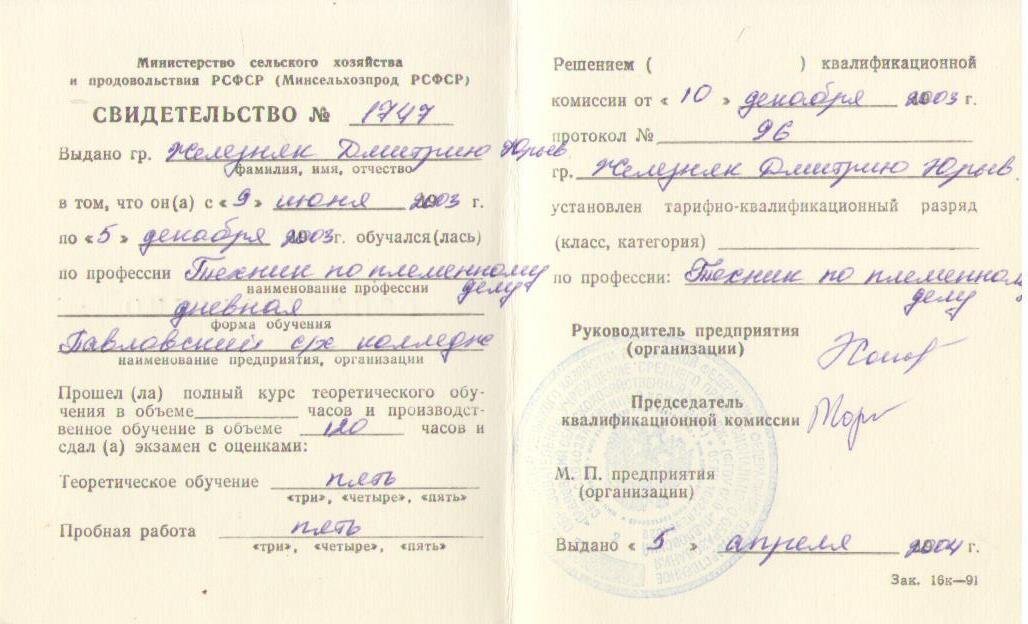 Министерство сельского хозяйства
и продовольствия РСФСР (Минсельхозпрод РСФСР)
СВИДЕТЕЛЬСТВО № 1747
Выдано гр. Железняк Дмитрию Юрьев.
фамилия, имя, отчество
в том, что он(а) с « 9 » июня 2003 г.
по « 5 » декабря 2003 г. обучался(лась)
по профессии Техник по племенному
наименование профессии делу
дневная
форма обучения
Павловский с/х колледж
наименование предприятия, организации
Прошел (ла) полный курс теоретического обу-
чения в объеме часов и производст-
венное обучение в объеме 120 часов и
сдал (а) экзамен с оценками:
Теоретическое обучение пять
«три», «четыре», «пять»
Пробная работа пять
«три», «четыре», «пять»
Решением ( ) квалификационной
комиссии от « 10 » декабря 2003 г.
протокол № 96
гр. Железняк Дмитрию Юрьев.
установлен тарифно-квалификационный разряд
(класс, категория)
по профессии: Техник по племенному
делу
Руководитель предприятия
(организации)
Председатель
квалификационной комиссии
М. П. предприятия
(организации)
Выдано « 5 » апреля 2004 г.
Зак. 16к—91